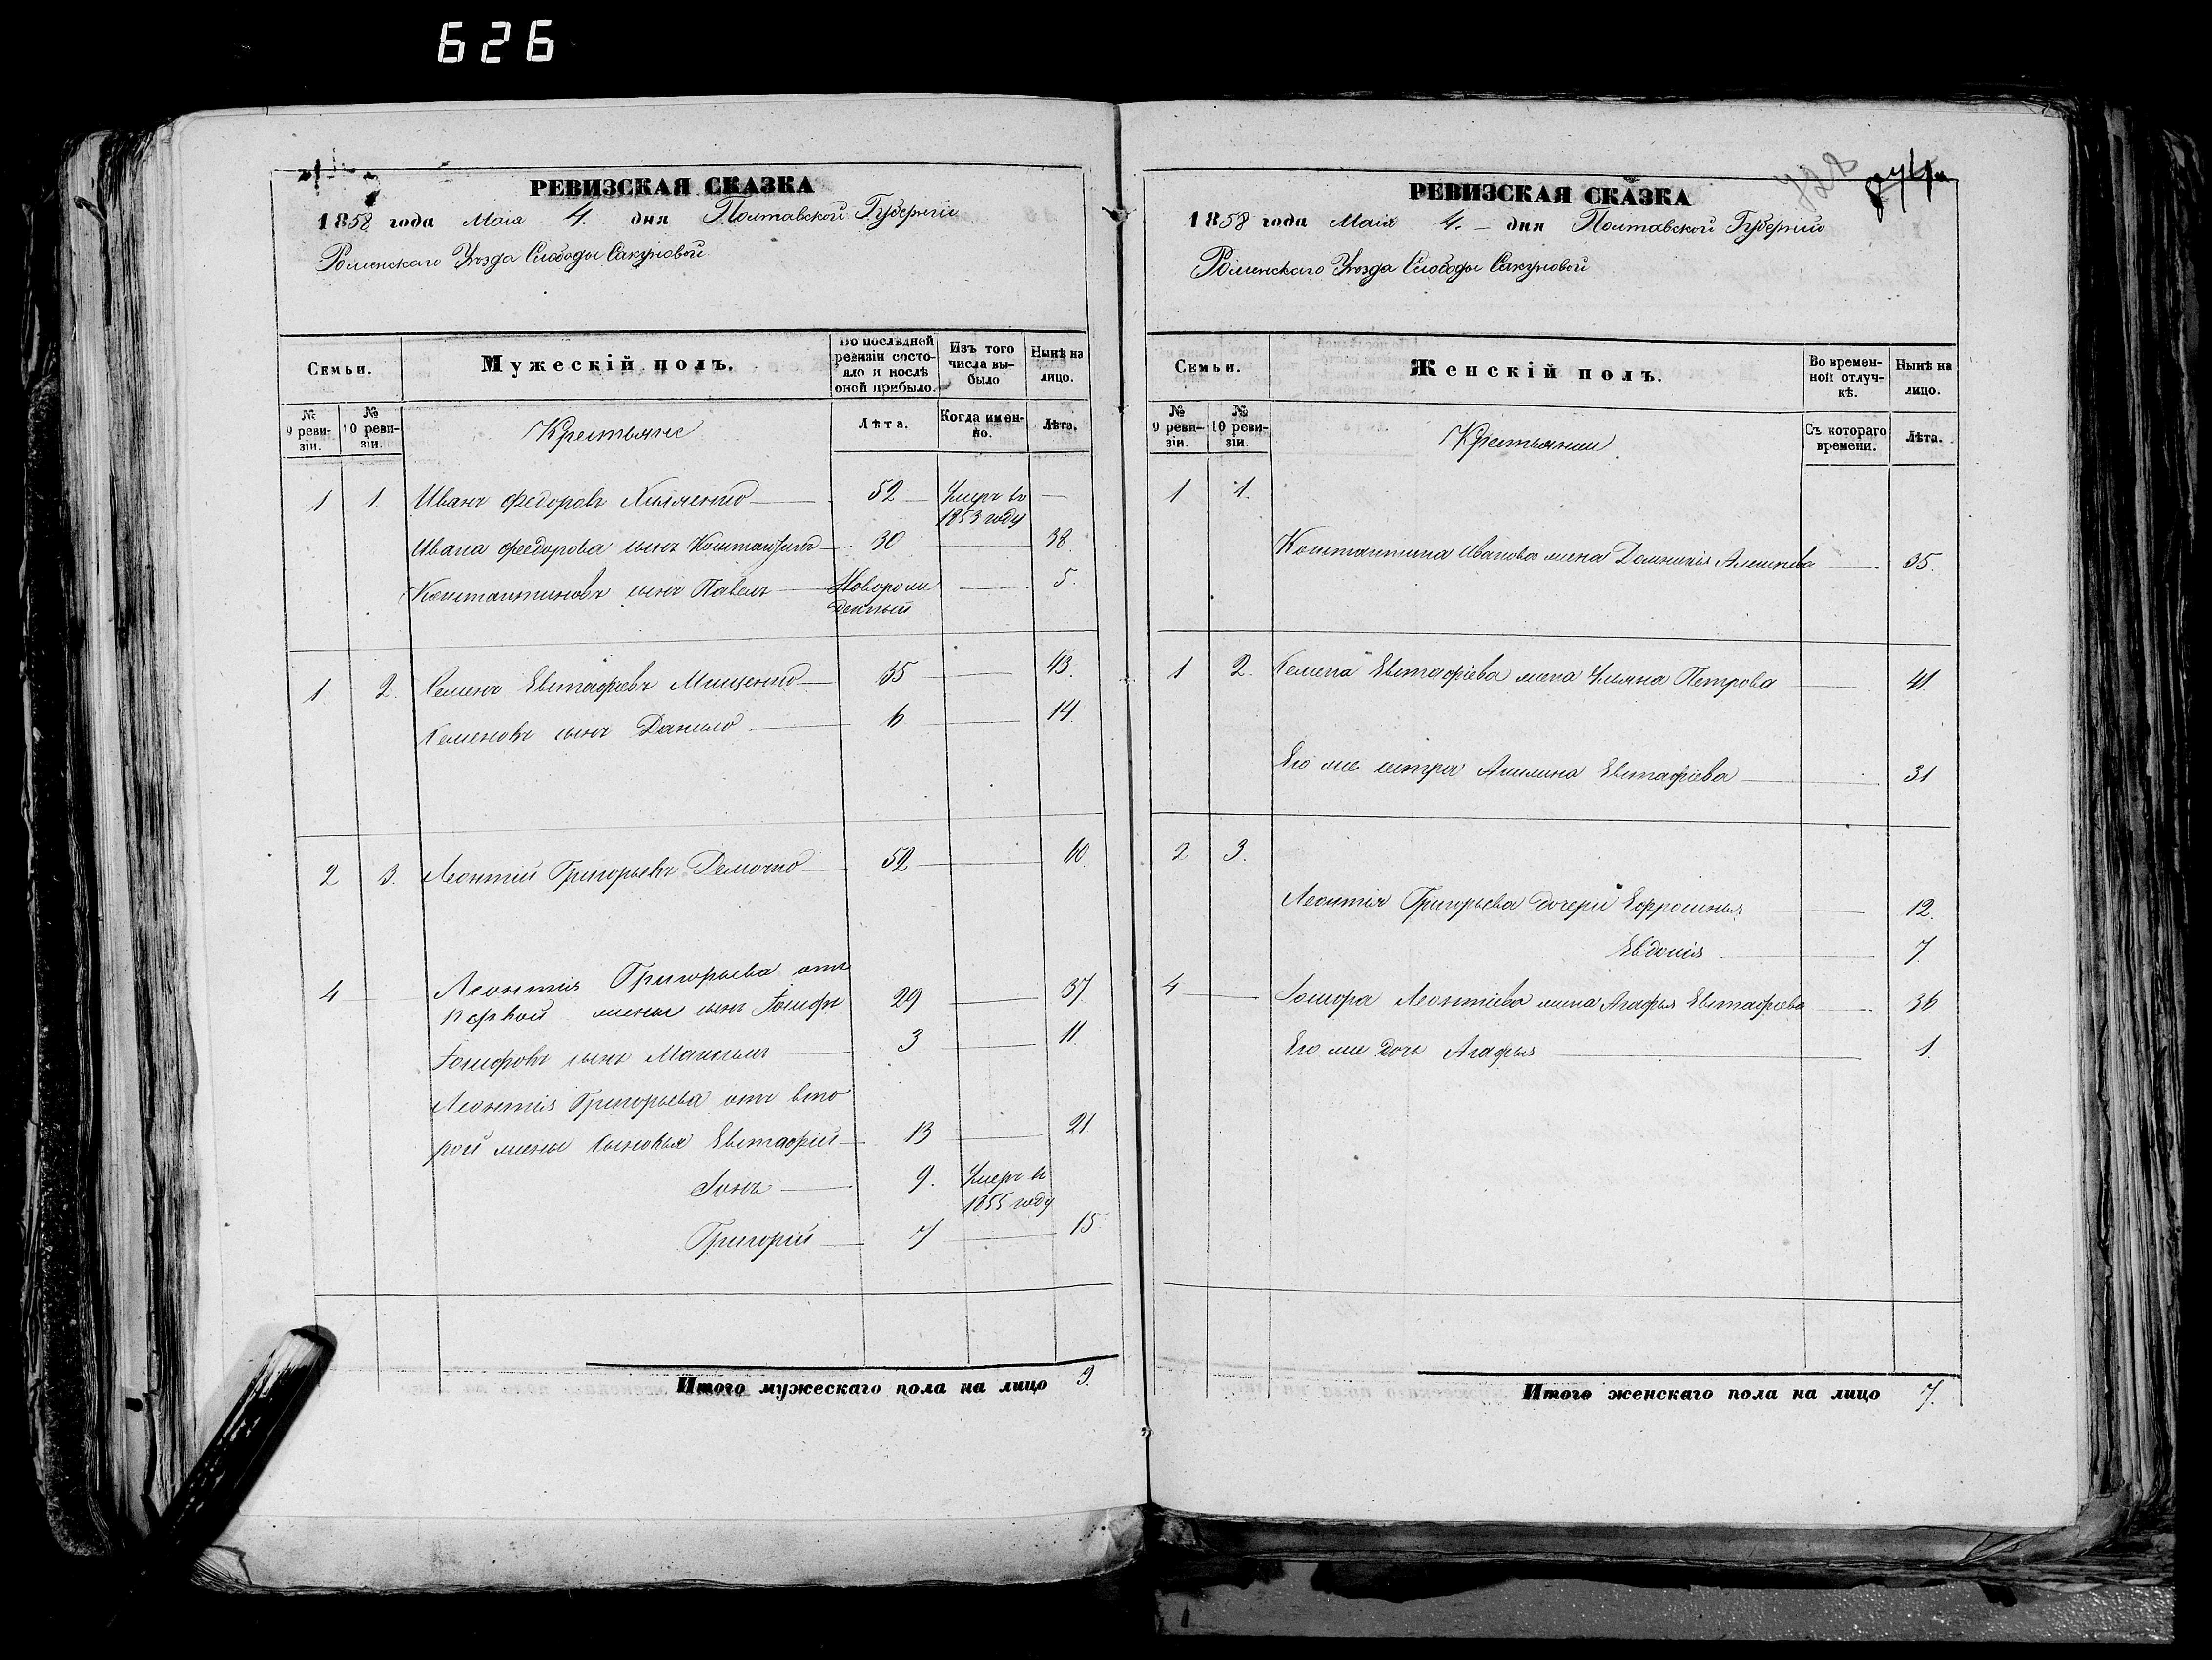 626
РЕВИЗСКАЯ СКАЗКА
1858 года Мая 4. дня Полтавской Губернiи
Роменскаго Уезда Слободы Сакуновой
Семьи.
Мужескій полъ.
Во послѣдней ревизіи состояло и послѣ оной прибыло.
Изъ того числа выбыло
Нынѣ на лицо.
№ 9 ревизіи.
№ 10 ревизіи.
Крестьяне
Лѣта.
Когда именно.
Лѣта.
1 1. Иванъ Федоровъ 52 Умеръ въ 1853 году —
Ивана Федорова сынъ Константинъ 30 38.
Константиновъ сынъ Павелъ Новорожденный 5.
1 2. Семенъ Евстафіевъ Мищенко 35 43.
Семеновъ сынъ Данило 6 14.
2 3. Леонтій Григорьевъ 52 60.
4 Леонтія Григорьева отъ
первой жены сынъ Іосифъ 29 37.
Іосифовъ сынъ Максимъ 3 11.
Леонтія Григорьева отъ вто
рой жены сыновья Евстафій 13 21.
Іонъ 9. Умеръ въ 1855 году
Григорій 7 15.
Итого мужескаго пола на лицо 9.
728
РЕВИЗСКАЯ СКАЗКА
1858 года Мая 4. дня Полтавской Губерніи
Роменскаго Уезда Слободы Сакуновой
Семьи.
Женскій полъ.
Во временной отлучкѣ.
Нынѣ на лицо.
№ 9 ревизіи.
№ 10 ревизіи.
Крестьянки
Съ котораго времени.
Лѣта.
1 1.
Константина Иванова жена Домникія 35.
1 2. Семена Евстафіева жена Ульяна Петрова 41.
Его же сестра Акилина Евстафіева 31
2 3.
Леонтія Григорьева дочери Ефросинья 12.
Евдокія 7.
4 Іосифа Леонтіева жена Агафья Евстафіева 36
Его же дочь Агафья 1.
Итого женскаго пола на лицо 7.